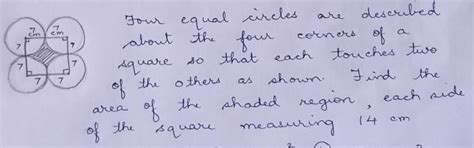 7 cm 7 cm
7 7
7 7
7 7
Four equal circles are described
about the four corners of a
square so that each touches two
of the others as shown. Find the
area of the shaded region, each side
of the square measuring 14 cm